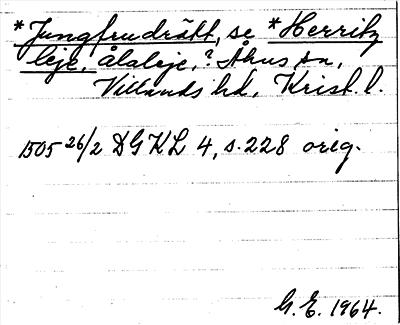 *Jungfrudrätt, se *Herritz
leje, ålaleje, ? Åhus sn,
Villands hd, Krist. l.
1505 26/2 DGKL 4, s. 228 orig.
G. E. 1964.